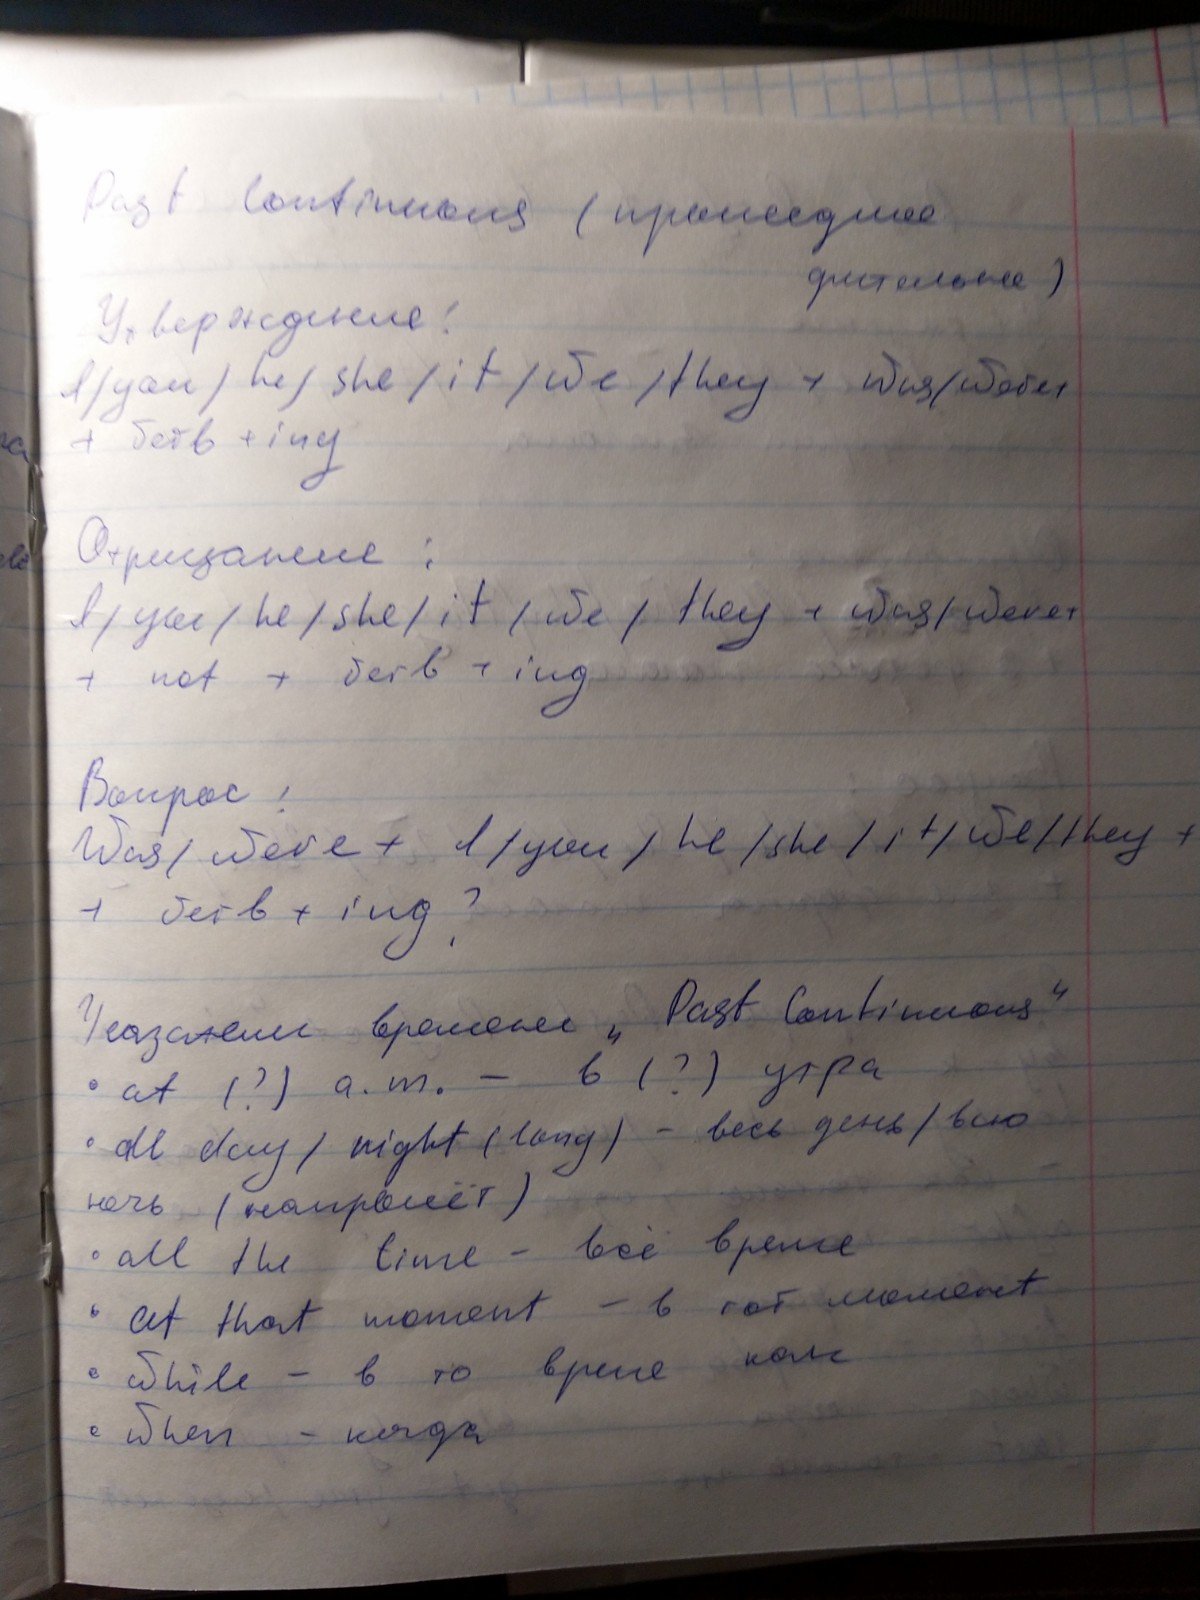 Past Continuous (прошедшее
длительное)
Утверждение:
I/you/he/she/it/we/they + was/were+
+ verb + ing
Отрицание:
I/you/he/she/it/we/they + was/were+
+ not + verb + ing
Вопрос:
Was/were + I/you/he/she/it/we/they +
+ verb + ing?
Указатели времени „Past Continuous“
• at (?) a.m. - в (?) утра
• all day/night (long) - весь день/всю
ночь (напролёт)
• all the time - всё время
• at that moment - в тот момент
• while - в то время как
• when - когда